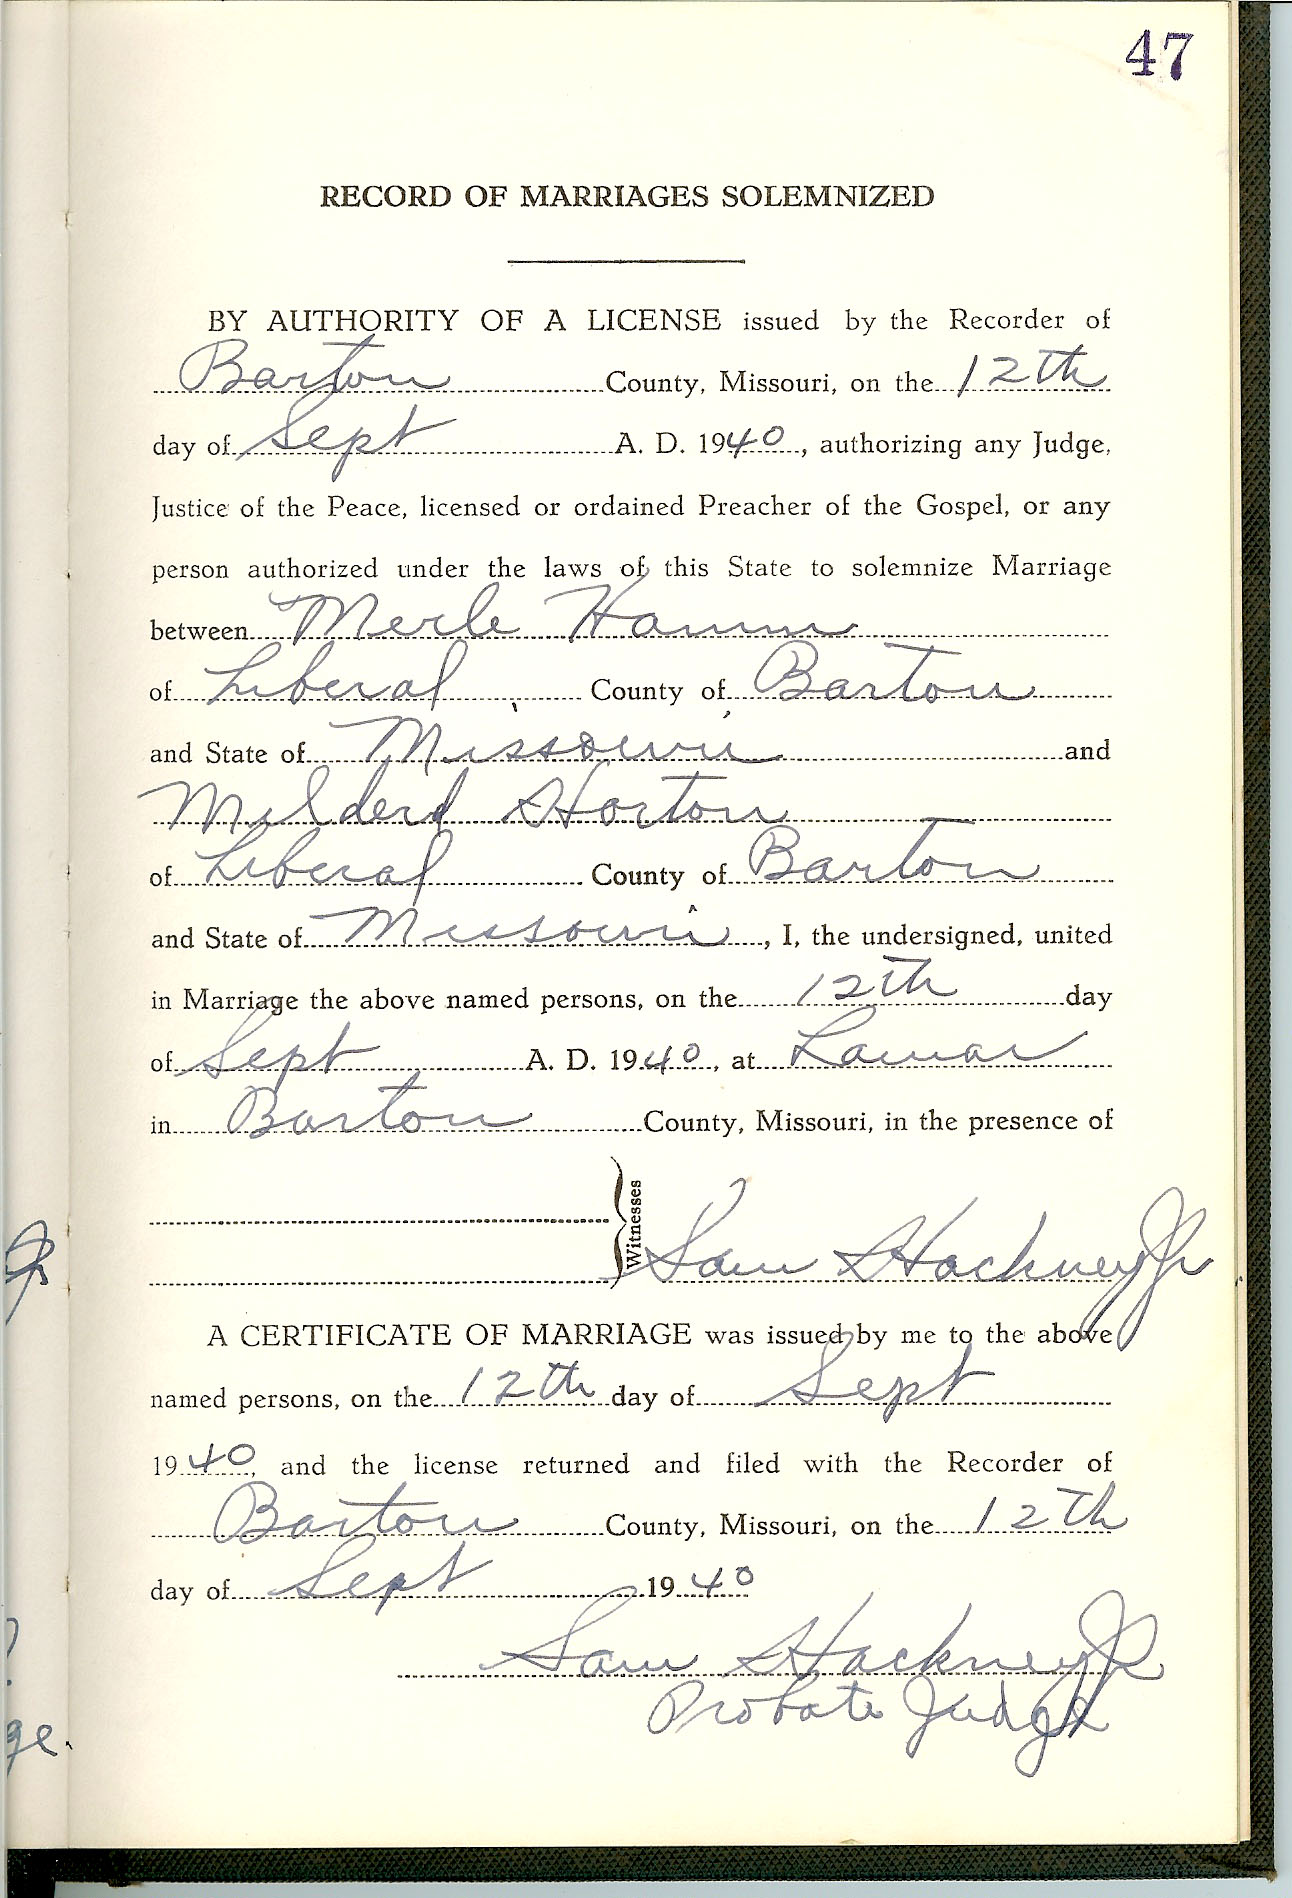 47
RECORD OF MARRIAGES SOLEMNIZED
BY AUTHORITY OF A LICENSE issued by the Recorder of
Barton County, Missouri, on the 12th
day of Sept A. D. 1940, authorizing any Judge,
Justice of the Peace, licensed or ordained Preacher of the Gospel, or any
person authorized under the laws of this State to solemnize Marriage
between Merle Hamm
of Liberal County of Barton
and State of Missouri and
Milderd Horton
of Liberal County of Barton
and State of Missouri, I, the undersigned, united
in Marriage the above named persons, on the 12th day
of Sept A. D. 1940, at Lamar
in Barton County, Missouri, in the presence of
Witnesses
Sam Hackney Jr
A CERTIFICATE OF MARRIAGE was issued by me to the above
named persons, on the 12th day of Sept
1940, and the license returned and filed with the Recorder of
Barton County, Missouri, on the 12th
day of Sept 1940
Sam Hackney Jr
Probate Judge
ge.